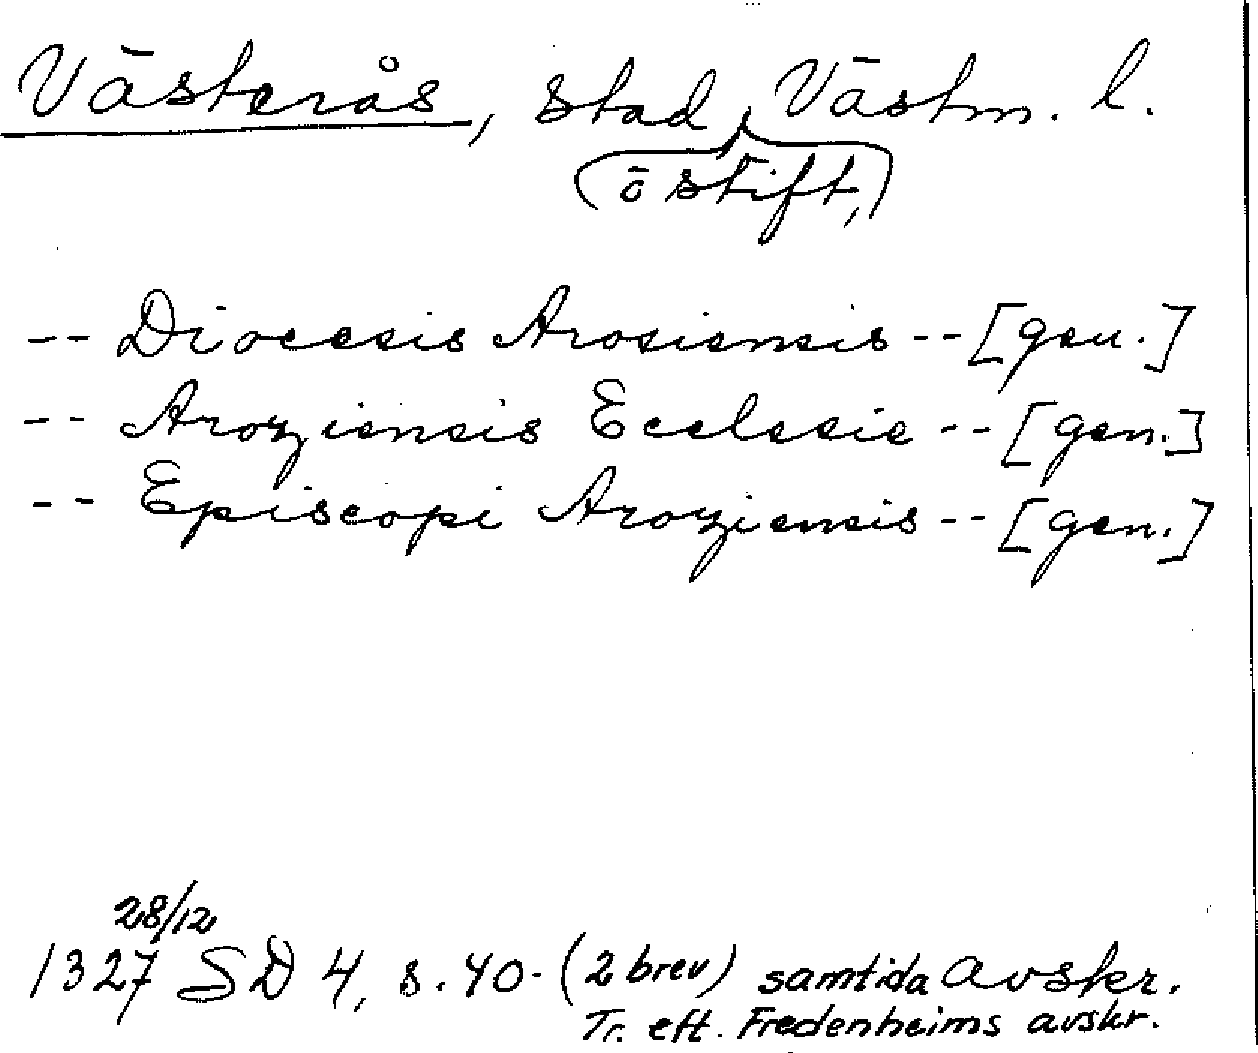 Västerås, stad, Västm. l.
(o stift,)
-- Diocesis Arosiensis -- [gen.]
-- Aroziensis Ecclesie -- [gen.]
-- Episcopi Aroziensis -- [gen.]
28/12
1327 SD 4, s. 40- (2 brev) samtida avskr.
Tr. eft. Fredenheims avskr.